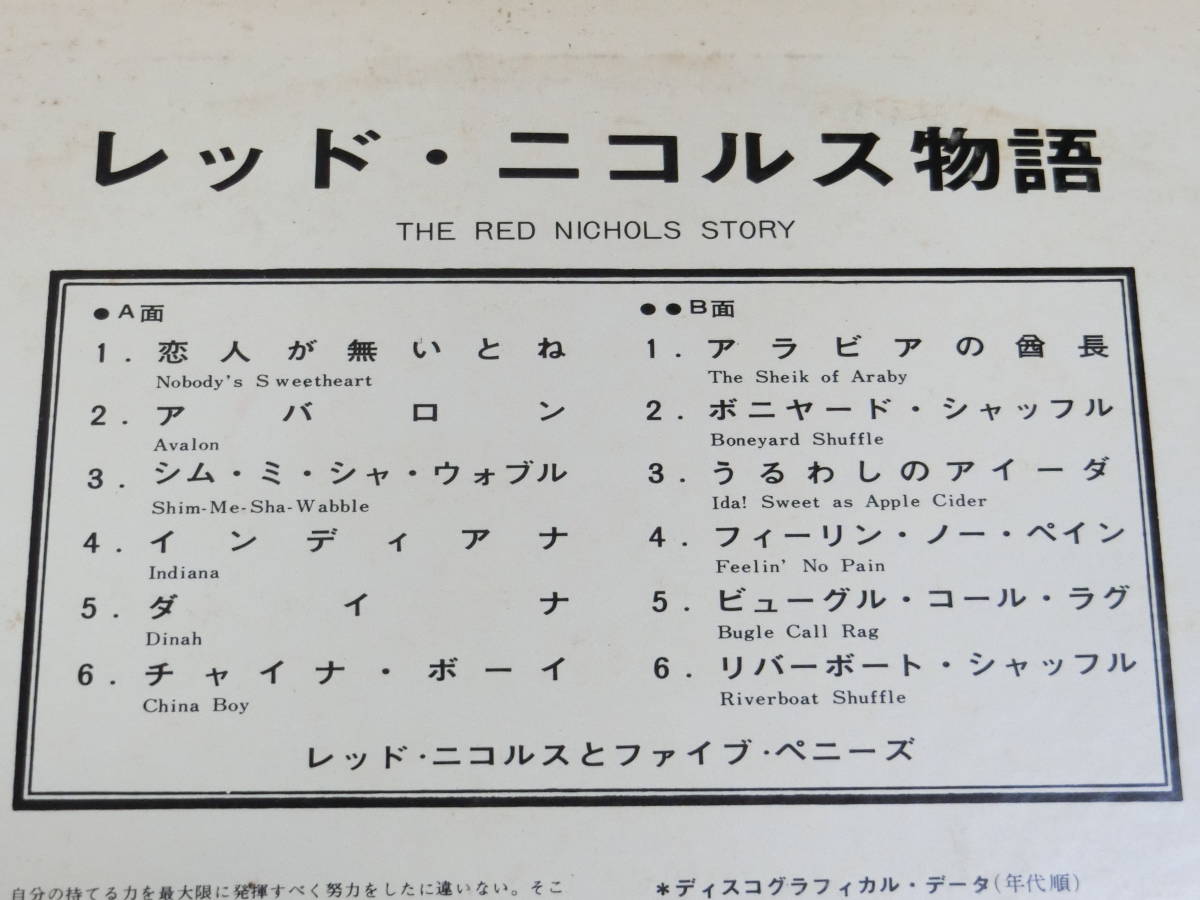 レッド・ニコルス物語
THE RED NICHOLS STORY
●A面
1. 恋人が無いとね
Nobody's Sweetheart
2. アバロン
Avalon
3. シム・ミ・シャ・ウォブル
Shim-Me-Sha-Wabble
4. インディアナ
Indiana
5. ダイナ
Dinah
6. チャイナ・ボーイ
China Boy
●●B面
1. アラビアの酋長
The Sheik of Araby
2. ボニヤード・シャッフル
Boneyard Shuffle
3. うるわしのアイーダ
Ida! Sweet as Apple Cider
4. フィーリン・ノー・ペイン
Feelin' No Pain
5. ビューグル・コール・ラグ
Bugle Call Rag
6. リバーボート・シャッフル
Riverboat Shuffle
レッド・ニコルスとファイブ・ペニーズ
自分の持てる力を最大限に発揮すべく努力をしたに違いない。そこ
*ディスコグラフィカル・データ(年代順)